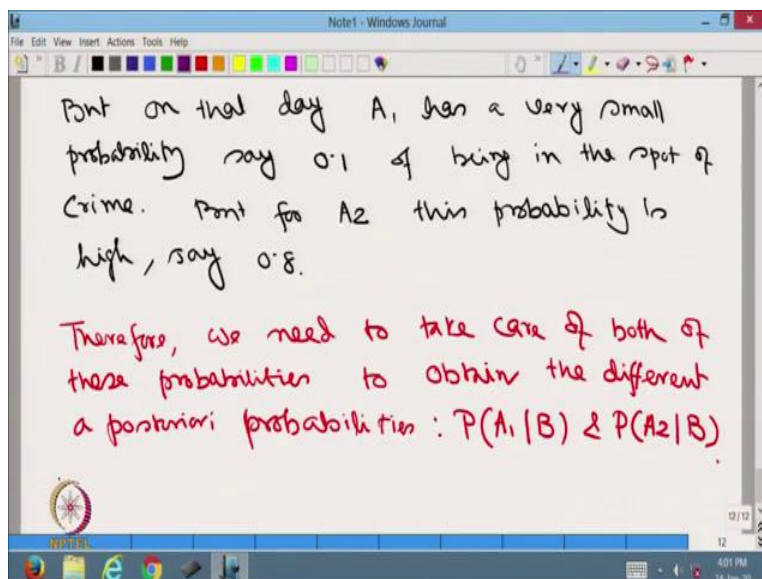 Note1 - Windows Journal
File Edit View Insert Actions Tools Help
But on that day A1 has a very small
probability say 0.1 of being in the spot of
Crime. But for A2 this probability is
high, say 0.8.
Therefore, we need to take care of both of
these probabilities to obtain the different
a posteriori probabilities : P(A1|B) & P(A2|B)
NPTEL
12/12
12
4:01 PM